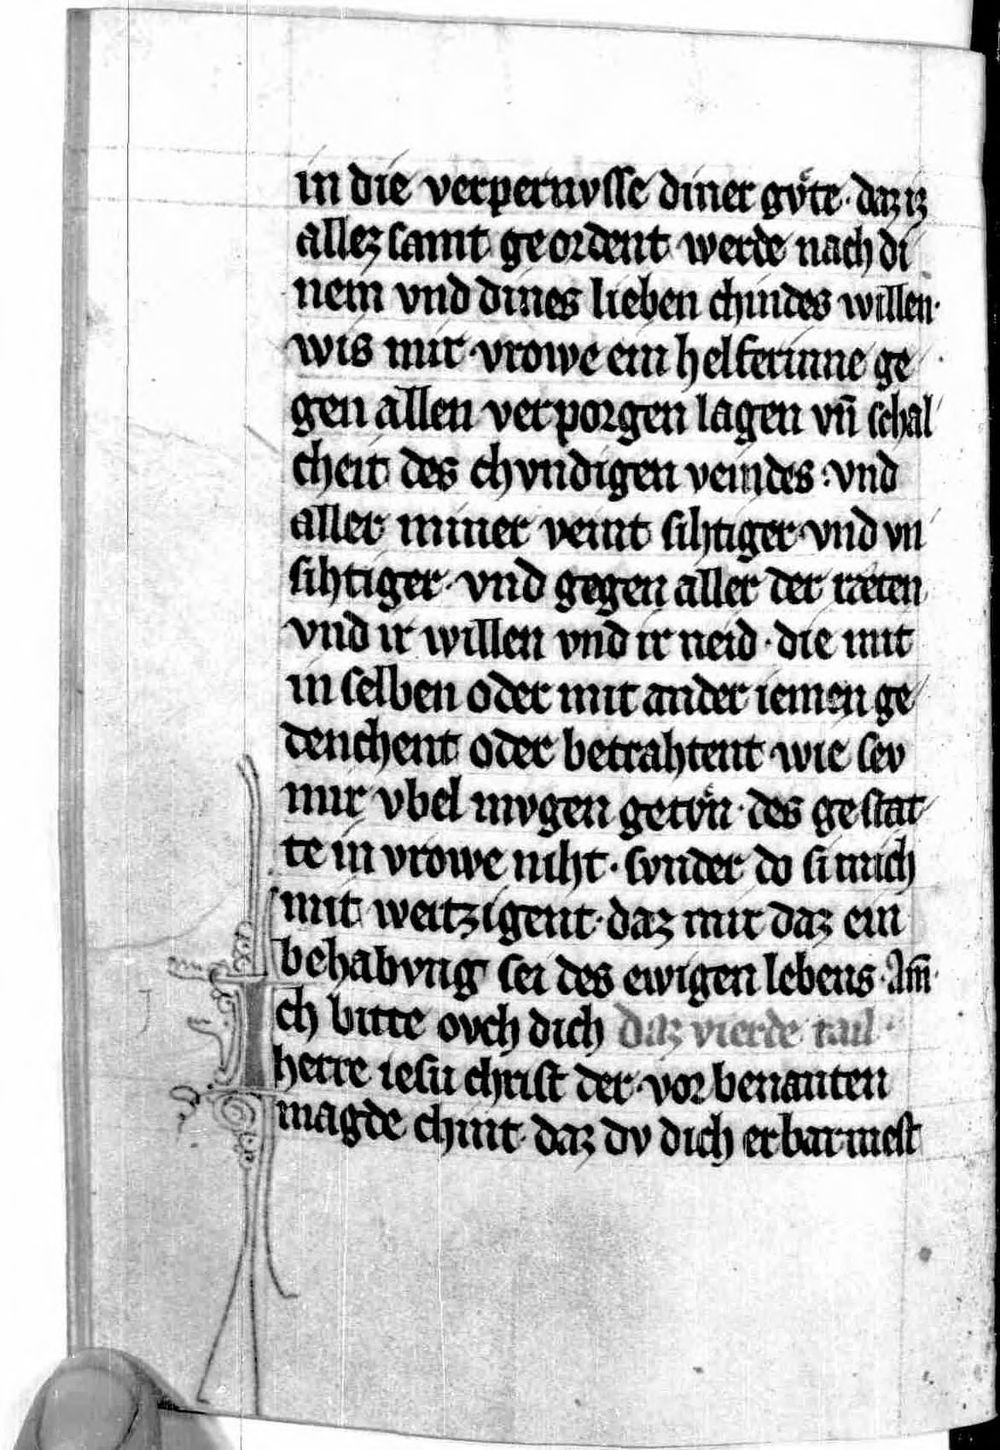 in die verpernvsse diner gv̊te· daz iz
allez samt geordent werde nach di
nem vnd dines lieben chindes willen·
wis mir vrowe ein helferinne ge
gen allen verporgen lagen vn̄ schal
cheit des chvndigen veindes· vnd
aller miner veint sihtiger vnd vn
sihtiger· vnd gegen aller der ræten
vnd ir willen vnd ir neid· die mit
in selben oder mit ander iemen ge
denchent oder betrahtent wie sev
mir vbel mvgen getv̊n· des gestat
te in vrowe niht· svnder do si mich
mit weitzigent· daz mir daz ein
behabvng sei des ewigen lebens· Am̄·
Ich bitte ovch dich daz vierde tail·
herre iesu christ der vor benanten
magde chint· daz dv dich erbarmest